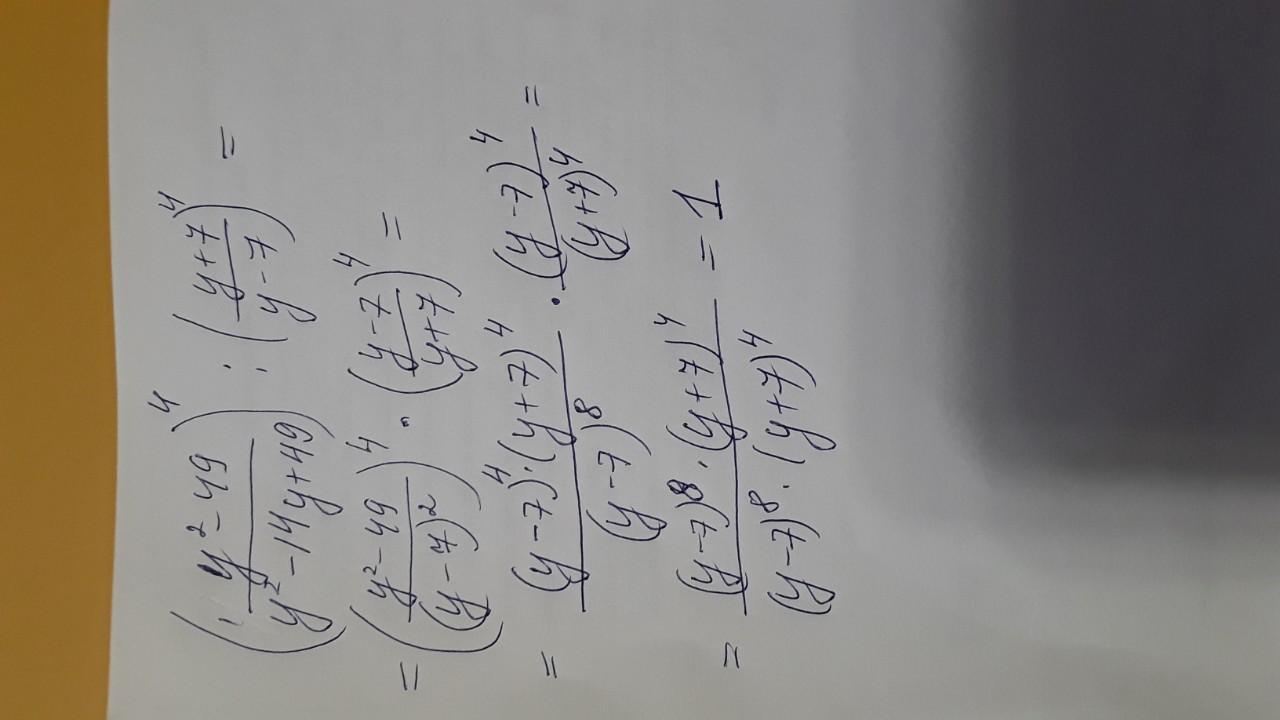 (y²-49 / y²-14y+49)⁴ : (y+7 / y-7)⁴ =
= (y²-49 / (y-7)²)⁴ · (y-7 / y+7)⁴ =
= (y-7)⁴·(y+7)⁴ / (y-7)⁸ · (y-7)⁴ / (y+7)⁴ =
= (y-7)⁸·(y+7)⁴ / (y-7)⁸·(y+7)⁴ = 1